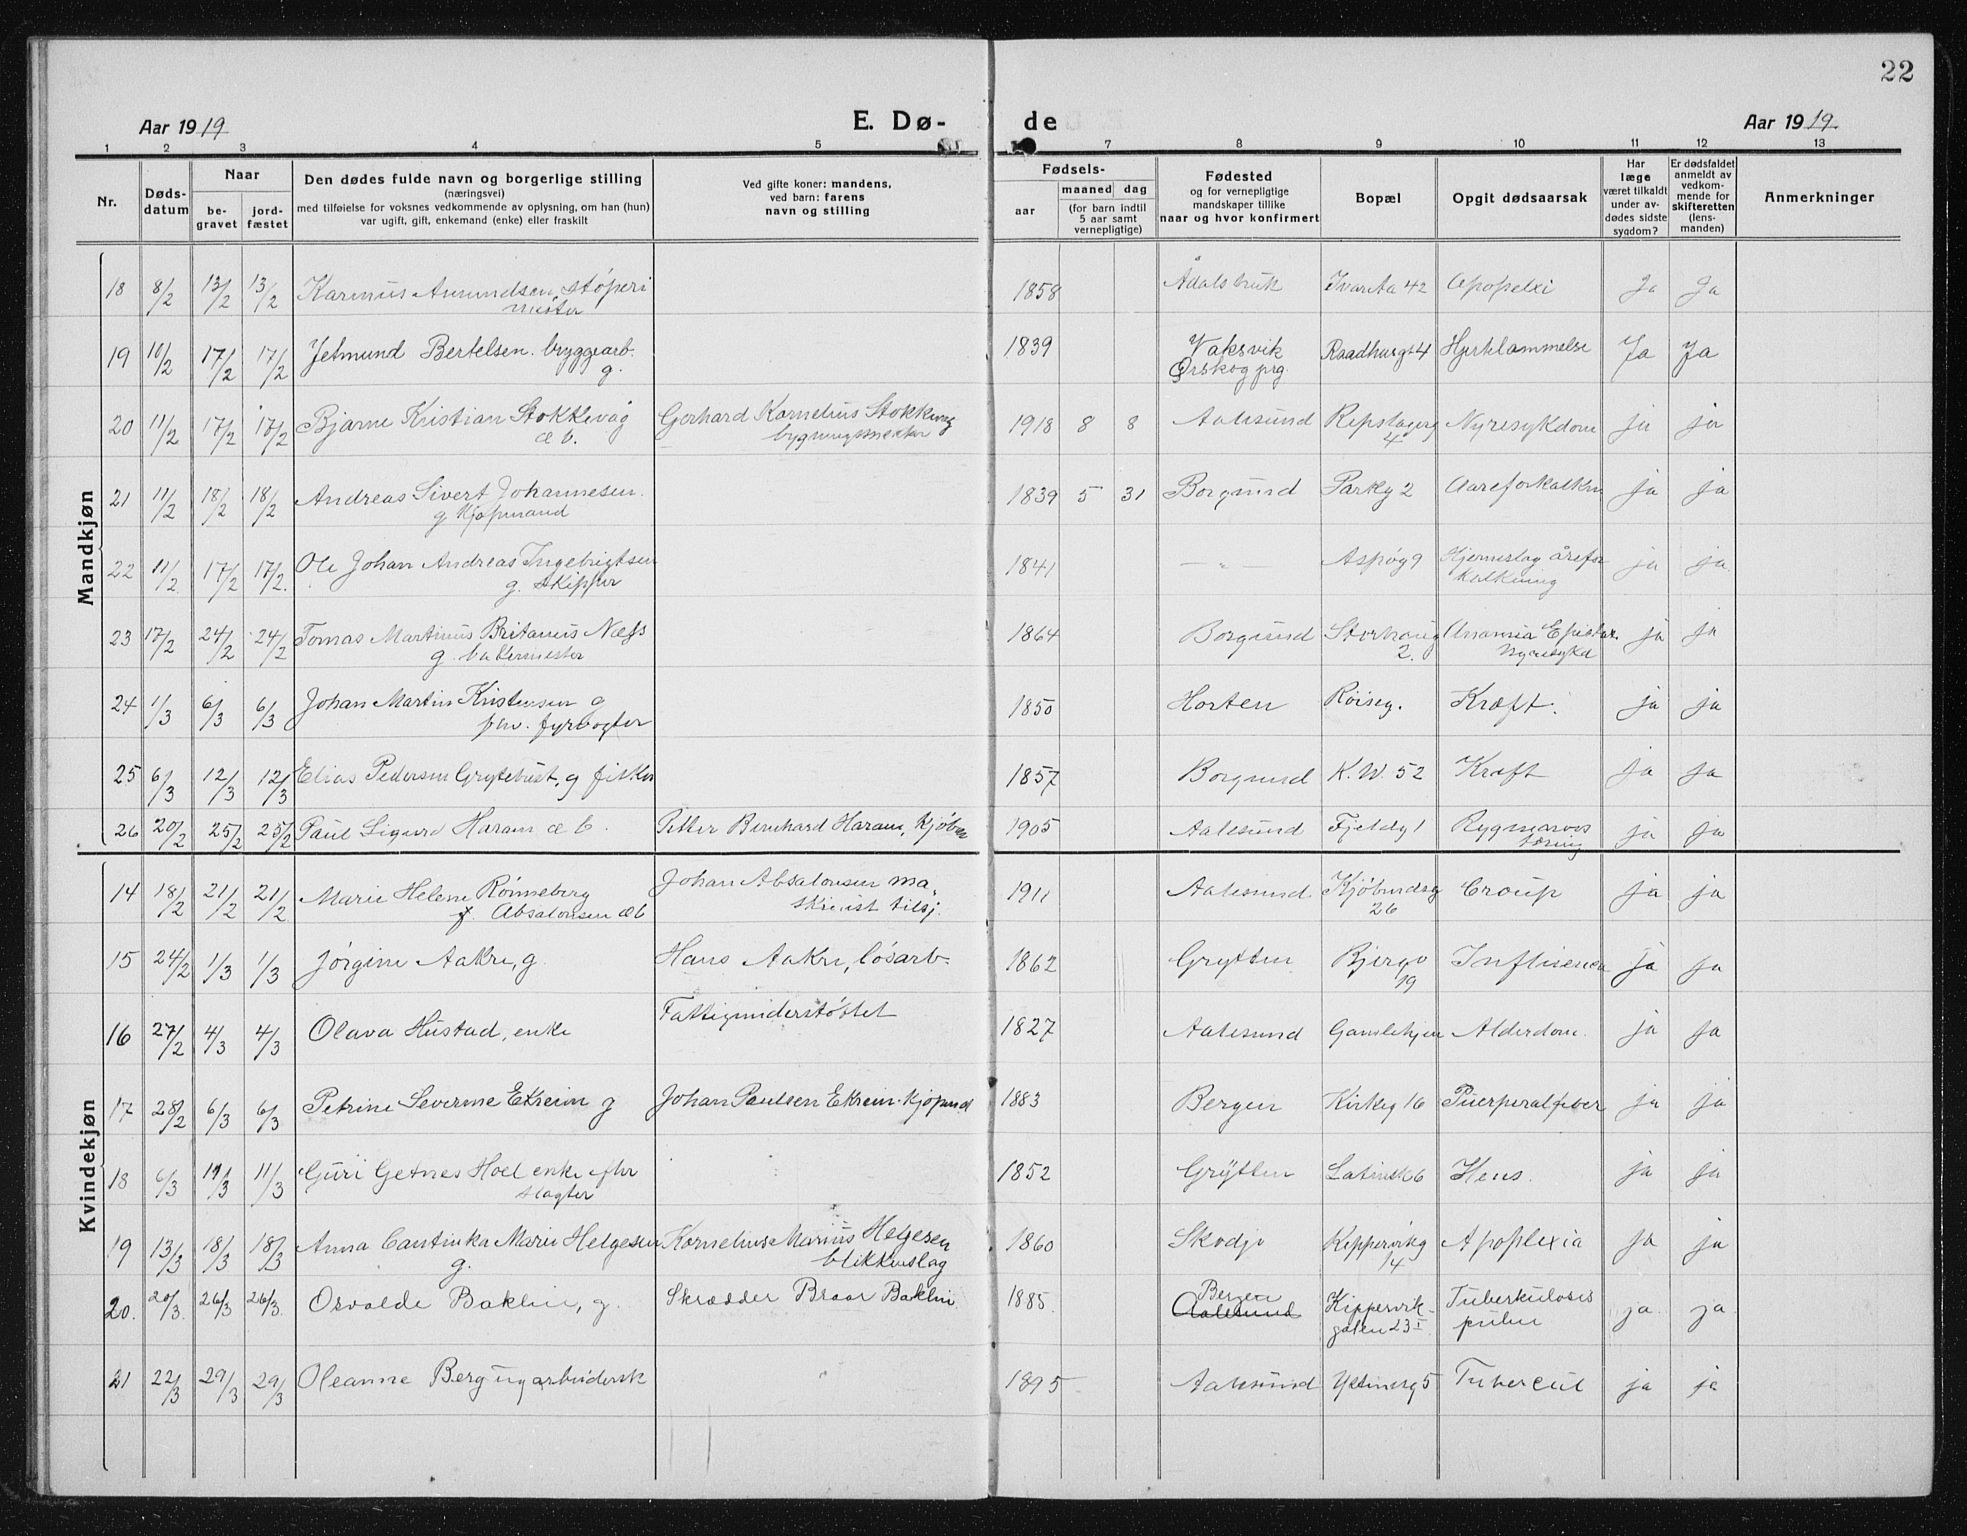 22
Aar 1919
E. Dø-
de
Aar 1919.
1 2 3 4 5 7 8 9 10 11 12 13
Nr.
Døds-
datum
Naar
be-
gravet
jord-
fæstet
Den dødes fulde navn og borgerlige stilling
(næringsvei)
med tilføielse for voksnes vedkommende av oplysning, om han (hun)
var ugift, gift, enkemand (enke) eller fraskilt
Ved gifte koner: mandens,
ved barn: farens
navn og stilling
Fødsels-
aar
maaned dag
(for barn indtil
5 aar samt
vernepligtige)
Fødested
og for vernepligtige
mandskaper tillike
naar og hvor konfirmert
Bopæl
Opgit dødsaarsak
Har
læge
været tilkaldt
under av-
dødes sidste
sygdom?
Er dødsfaldet
anmeldt av
vedkom-
mende for
skifteretten
(lens-
manden)
Anmerkninger
Mandkjøn
18 8/2 13/2 13/2 Karinius Amundsen, støperi 1858 Ådalsbruk 42 Apopelxi Ja Ja
mester
19 10/2 17/2 17/2 Jetmund Bertelsen. bryggearb. 1839 Vaksvik Raadhusgt 4 Hjertelammelse Ja Ja
g. Ørskog prg.
20 11/2 17/2 17/2 Bjarne Kristian Stokkevåg Gerhard Kornelius Stokkevåg 1918 8 8 Aalesund Repslagerg Nyresykdom ja ja
æ b. bygningssnekker 4
21 11/2 18/2 18/2 Andreas Sivert Johannesen. 1839 5 31 Borgund Parkg 2 Aareforkalkn ja ja
g kjøpmand
22 11/2 17/2 17/2. Ole Johan Andreas Ingebrigtsen 1841 — „ — Aspøg 9 Hjerneslag årefor ja ja
g. skipper kalkning
23 17/2 24/2 24/2 Tomas Martinus Britanus Næss 1864 Borgund Storhaug Epistax. ja ja
g. 2. Nyresykd
24 1/3 6/3 6/3 Johan Martin Kristensen g 1850 Horten Røiseg. Kræft. ja ja
pen. fyrvogter
25 6/3 12/3 12/3 Elias Pedersen Grytebust, g fisker 1857 Borgund K. W. 52 Kræft ja ja
26 20/2 25/2 25/2 Paul Sigurd Haram æ b. Petter Bernhard Haram, kjøbm 1905 Aalesund Fjeldg 1 Rygmarvs ja ja
tæring
Kvindekjøn
14 18/2 21/2 21/2 Marie Helene Rønneberg Johan Absalonsen ma- 1911 Aalesund Kjøbmdsg Croup ja ja
Absalonsen æ b skinist tilsj. 26
15 24/2 1/3 1/3 Jørgine Aakre, g. Hans Aakre, løsarb. 1862 Grytten Bjergv Influenca ja ja
19
16 27/2 4/3 4/3 Olava Hustad, enke Fattigunderstøttet 1827 Aalesund Gamlehjem Alderdom. ja ja
17 28/2 6/3 6/3 Petrine Severine Ekreim g Johan Paulsen Ekreim. kjøpmd 1883 Bergen Kirkeg 16 Puerperalfeber ja ja
18 6/3 11/3 11/3 Guri Getnes Hoel enke efter 1852 Grytten Latinsk 6 ja ja
slagter
19 13/3 18/3 18/3 Anna Cantinka Marie Helgesen Kornelius Marius Helgesen 1860 Skodje Kippervikg Apoplexia ja ja
g. blikkenslag 14
20. 20/3. 26/3 26/3. Osvalde Baklin, g. Skrædder Braar Baklin 1885. Bergen Kippervik- Tuberkulosis ja ja
Aalesund gaten 23 I pulm
21 22/3 29/3 29/3 Oleanne Berg ug arbeidersk 1895 Aalesund 5 Tubercul ja ja